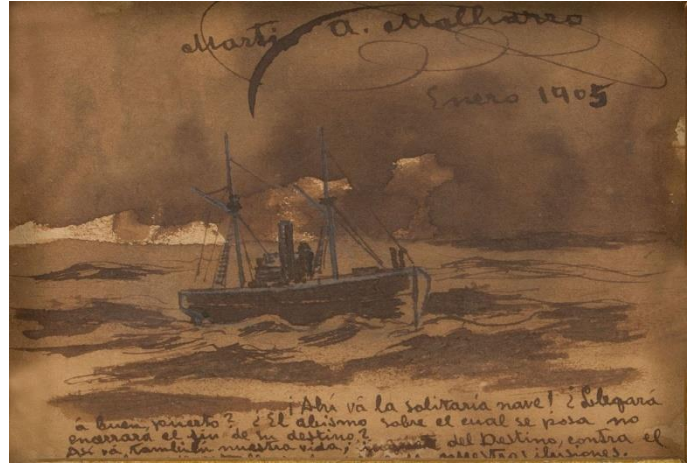 Martin A. Malharro
Enero 1905
¡Ahi vá la solitaria nave! ¿Llegará
á buen puerto? ¿El abismo sobre el cual se posa no
enarrará el fin de su destino?
Asi vá, tambien nuestra vida, del Destino, contra el
nuestras ilusiones.